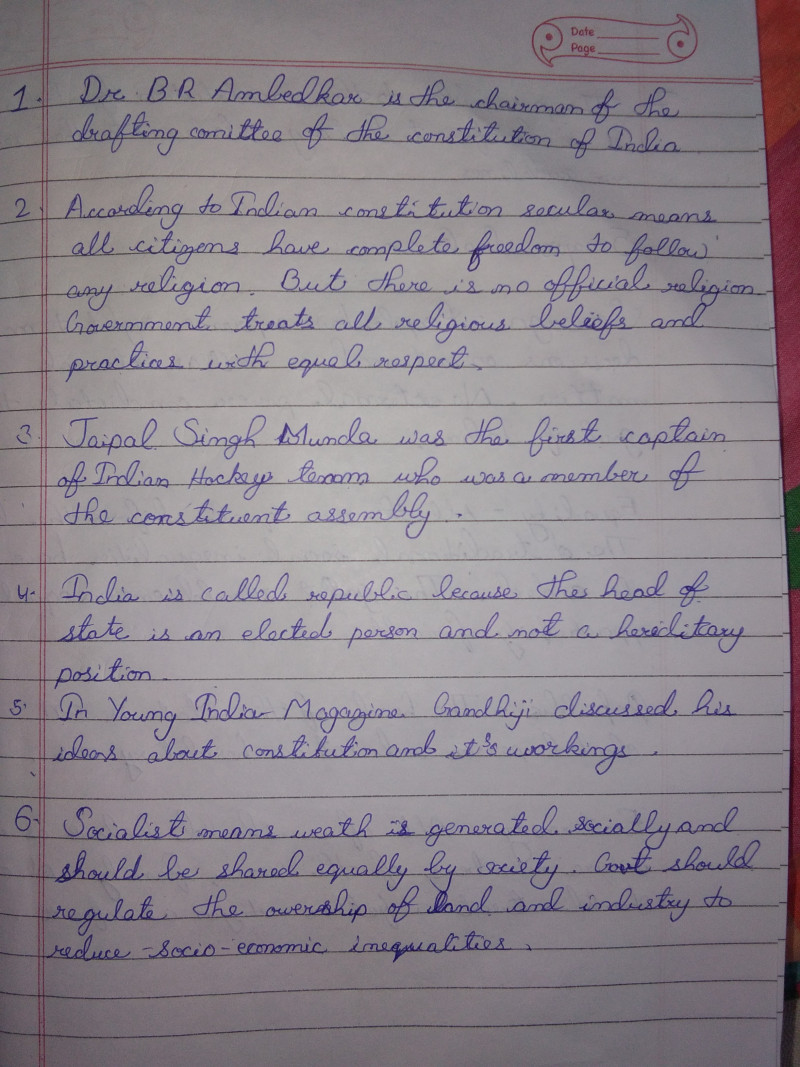 Date
Page
1. Dr. B R Ambedkar is the chairman of the
drafting comittee of the constitution of India
2. According to Indian constitution secular means
all citizens have complete freedom to follow
any religion. But there is no official religion
Government treats all religious beliefs and
practices with equal respect.
3. Jaipal Singh Munda was the first captain
of Indian Hockey team who was a member of
the constituent assembly.
4. India is called republic because the head of
state is an elected person and not a hereditary
position.
5. In Young India Magazine Gandhiji discussed his
ideas about constitution and it's workings.
6. Socialist means weath is generated socially and
should be shared equally by society. Govt should
regulate the owership of land and industry to
reduce socio-economic inequalities.